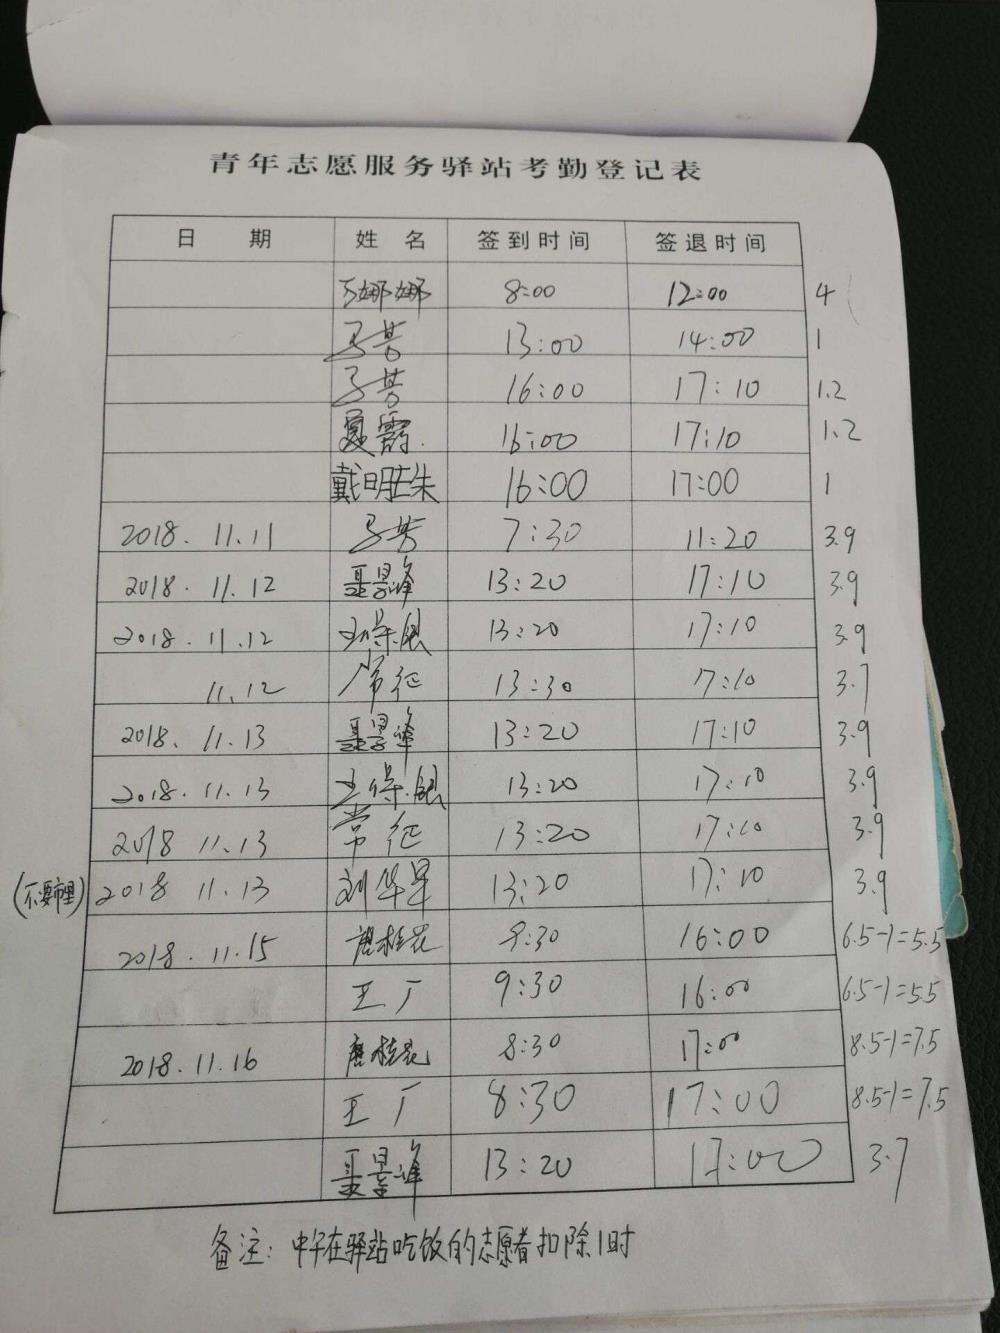 青年志愿服务驿站考勤登记表
日 期 姓 名 签到时间 签退时间
马娜娜 8:00 12:00 4
马芳 13:00 14:00 1
马芳 16:00 17:10 1.2
夏霞 16:00 17:10 1.2
戴明 16:00 17:00 1
2018.11.11 马芳 7:30 11:20 3.9
2018.11.12 聂景峰 13:20 17:10 3.9
2018.11.12 王保银 13:20 17:10 3.9
11.12 常征 13:30 17:10 3.7
2018.11.13 聂景峰 13:20 17:10 3.9
2018.11.13 王保银 13:20 17:10 3.9
2018 11.13 常征 13:20 17:10 3.9
(不要市里) 2018 11.13 刘华军 13:20 17:10 3.9
2018.11.15 唐桂花 9:30 16:00 6.5-1=5.5
王广 9:30 16:00 6.5-1=5.5
2018.11.16 唐桂花 8:30 17:00 8.5-1=7.5
王广 8:30 17:00 8.5-1=7.5
聂景峰 13:20 17:00 3.7
备注：中午在驿站吃饭的志愿者扣除1时